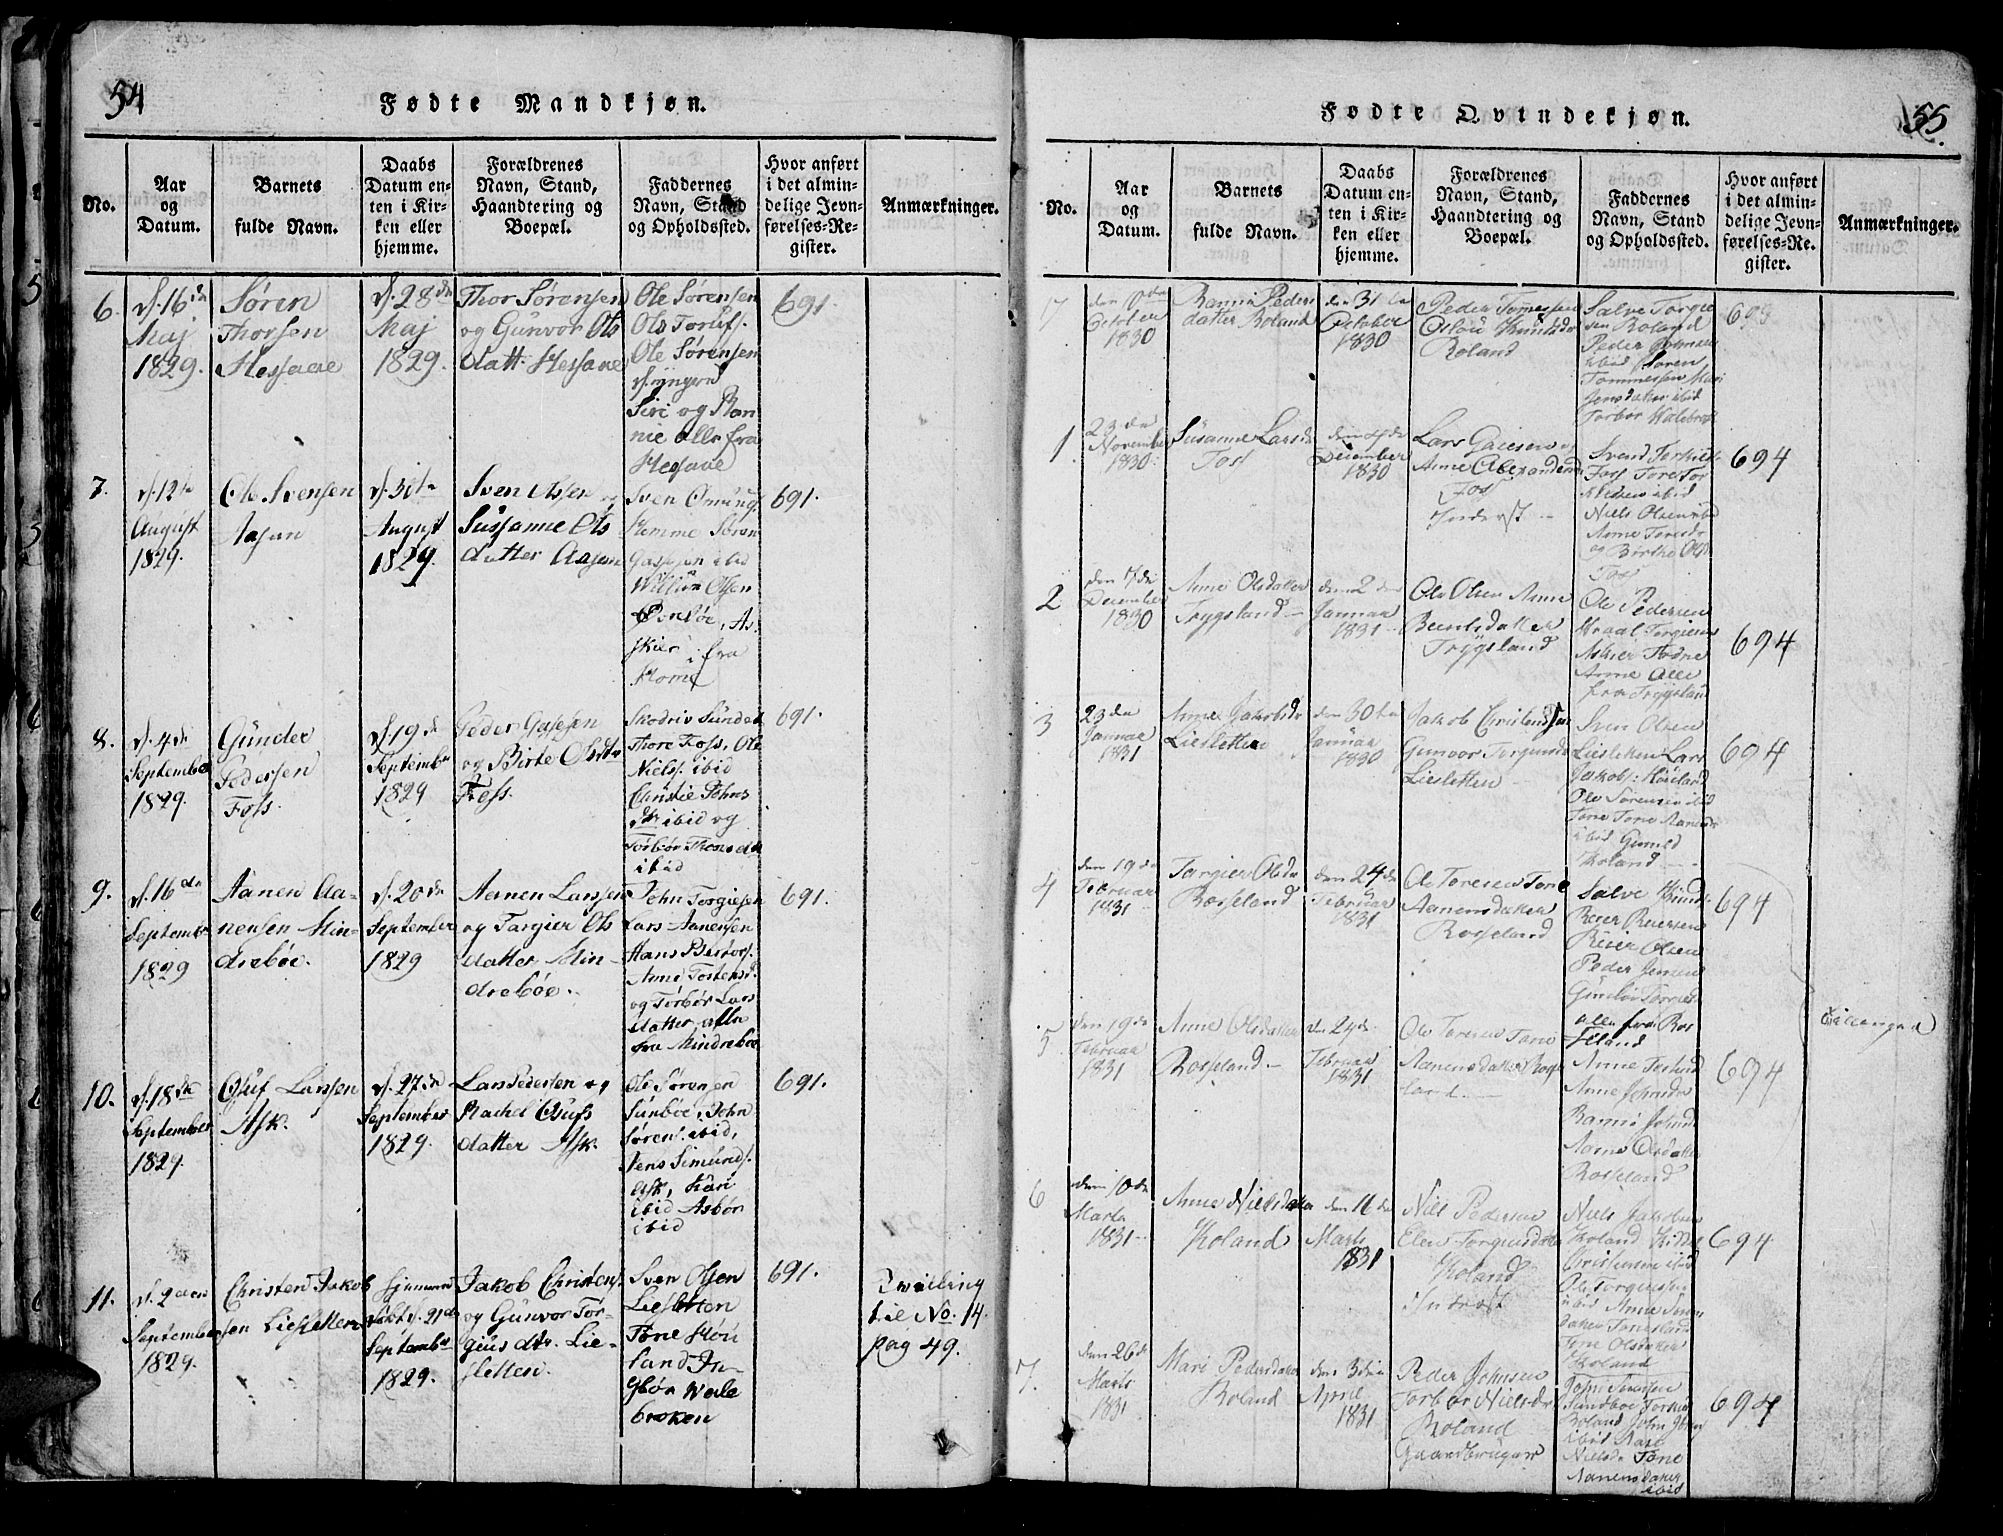 54
Fødte Mandkjøn.
No.
Aar
og
Datum.
Barnets
fulde Navn.
Daabs
Datum en-
ten i Kir-
ken eller
hjemme.
Forældrenes
Navn, Stand,
Haandtering og
Boepæl.
Faddernes
Navn, Stand
og Opholdssted.
Hvor anført
i det almin-
delige Jevn-
førelses-Re-
gister.
Anmærkninger.
6.
d. 16de
Maj
1829.
Søren
Thorsen
Messaae
d. 28de
Maj
1829.
Thor Sørensen
og Gunvor Ols
datt. Messaae
Ole Sørensen
Ole Sørensen
d. yngere
Siri og Ran
nie alle fra
Messaae
691.
7.
d. 12te
August
1829.
Ole Svensen
Aasen
d. 30te
August
1829.
Sven
Sussanne Ols
datter Aasen
Sven
Homme Søren
ibid
Willum Olsen
i fra
Home
691.
8.
d. 4de
September
1829.
Gunder
Pedersen
Foss.
d. 19de
September
1829
Peder Gasesen
og Birte Olsdtr
Foss.
Thore Foss, Ole
Niels. ibid
Christie Johns
dtr ibid og
Torbør Thorsdtr
ibid
691.
9.
d. 16de
September
1829
Aanen Aa-
nensen Min-
drebøe.
d. 20de
September
1829
Aanen Larssen
og Targier Ols
datter Min-
drebøe.
John Torgiesen
Lars Aanensen
Hans
Anne Tostensd.
og Torbør Lars
datter, alle
fra Mindrebøe
691.
10.
d. 18de
September
1829.
Osuf Larssen
Ask.
d. 27de
September
1829.
Lars Pedersen og
Rachel Osufs
datter Ask.
Ole Sørensen
Sunbøe, John
Sørens. ibid,
Jens Simunds.
Ask, Kari
ibid Asbør
ibid
691.
11.
d. 2den
September
1829.
Christen Jakob
sen Liesletten
Hjemme
døbt d. 21de
September
1829.
Jakob Christens.
og Gunvor Tor-
gius dtr. Lie-
sletten.
Sven Olsen
Liesletten
Tone Høii
land In-
gbør Wale
broken
691.
Twilling
til No. 14.
pag 49.
55.
Fødte Qvindekjøn.
No.
Aar
og
Datum.
Barnets
fulde Navn.
Daabs
Datum en-
ten i Kir-
ken eller
hjemme.
Forældrenes
Navn, Stand,
Haandtering og
Boepæl.
Faddernes
Navn, Stand
og Opholdssted.
Hvor anført
i det almin-
delige Jevn-
førelses-Re-
gister.
Anmærkninger.
den 10de
October
1830
Ranni Peders
datter Roland
den 31te
October
1830
Peder Tomessen
Oslou Knudsdr
Roland
Salve Torgie
sen Roland
Peder Johnsen
ibid Søren
Tommessen Mari
Jensdatter ibid
Torbør Walebrok
693
1
23de
November
1830.
Susanne Larsdr
Foss
December
1830
Lars Gasesen og
Anne Alexandersdr
Foss
Inderst
Svend
Foss Tore Tor
kildsen ibid
Niels Olsen ibid
Anne Toresdr
og Birthe Olsdr
Foss
694
2
den 7de
December
1830
Anne Olsdatter
Trygsland
den 2den
Januar
1831
Ole Olsen Anne
Berntsdatter
Trygsland
Ole Pedersen
Torgiesen
Askier Fodne
Anne Alle
fra Trygsland
694
3
23de
Januar
1831
Anne Jakobsdr
Liesletten
den 30te
Januar
1830
Jakob Christensen
Gunvor Torgiusdr
Liesletten
Sven Olsen
Liesletten Lars
Jakobs: Høiland
Ole Sørensen ibid
Tone Aanensdr
ibid Gunild
Roland
694
4
den 19de
Februar
1831
Targier Olsdr
Rosseland
den 24de
Februar
1831
Ole Toresen Tone
Aanensdatter
Rosseland
Salve Knuds
Reier Reiersen
Reier Olsen
Peder Jensen
alle fra Ros
seland
694
Tvillinger
5
den 19de
Februar
1831
Anne Olsdatter
Rosseland
den 24de
Februar
1831
Ole Toresen Tone
Aanensdatter Rosse
land.
Anne
Anne Johnsdr
Ranni Johnsdr
Anne Olsdatter
Rosseland
694
6
den 10de
Marts
1831
Anne Nielsdatter
Roland
den 11de
Marts
1831
Niels Pedersen
Elen Torgiusdatter
Roland
Inderst
Niels Jakobsen
Roland
Christensen ibid
Ole Torgiussen
ibid Anne
Tone Olsdatter
Roland
694
7.
den 26de
Marts
1831
Mari Pedersdatter
Roland
den 3die
April
1831
Peder Johnsen
Torbør Nielsdr
Roland
Gaardbruger
Sundbøe
Roland John
ibid
Nielsdr Tone
Aanensdatter
ibid
694